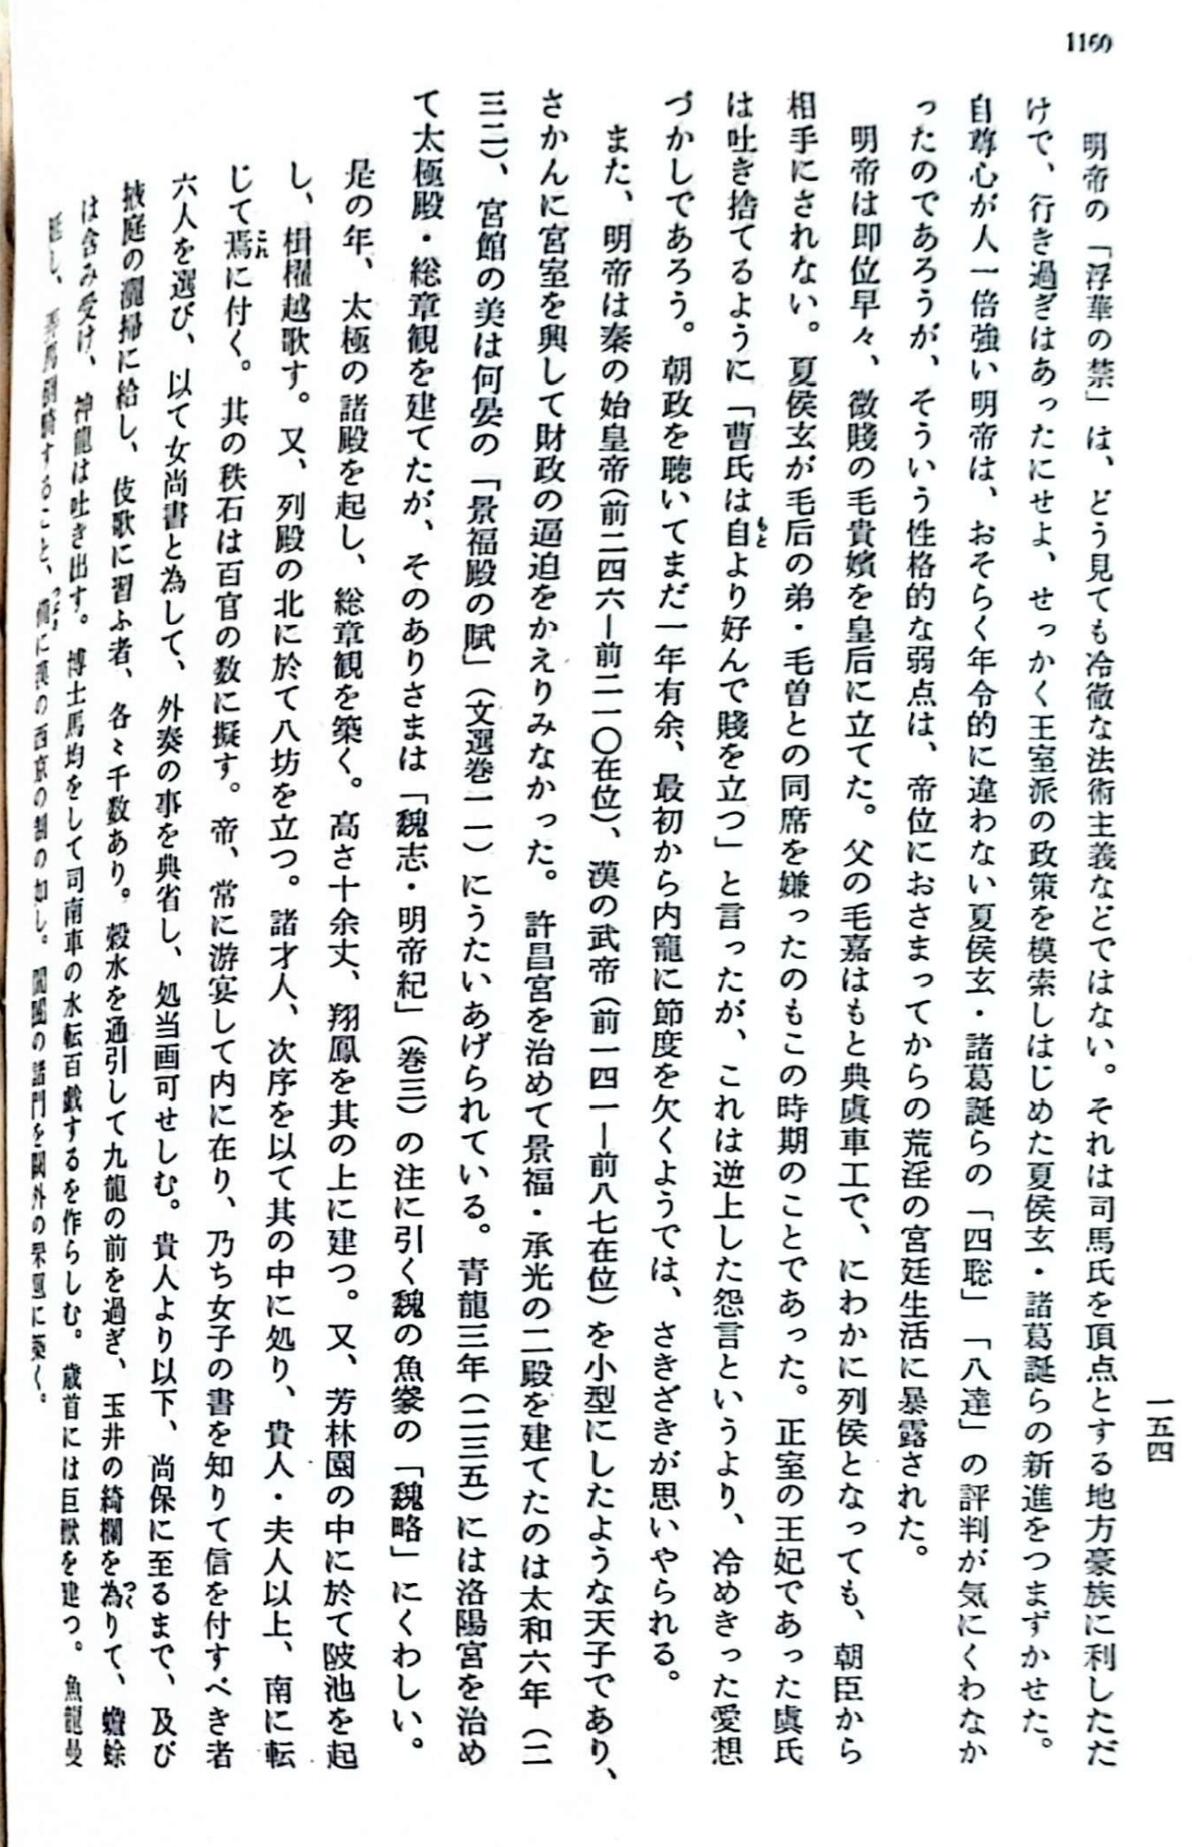 1160
一五四
明帝の「浮華の禁」は、どう見ても冷徹な法術主義などではない。それは司馬氏を頂点とする地方豪族に利しただ
けで、行き過ぎはあったにせよ、せっかく王室派の政策を模索しはじめた夏侯玄・諸葛誕らの新進をつまずかせた。
自尊心が人一倍強い明帝は、おそらく年令的に違わない夏侯玄・諸葛誕らの「四聡」「八達」の評判が気にくわなか
ったのであろうが、そういう性格的な弱点は、帝位におさまってからの荒淫の宮廷生活に暴露された。
明帝は即位早々、微賤の毛貴嬪を皇后に立てた。父の毛嘉はもと典虞車工で、にわかに列侯となっても、朝臣から
相手にされない。夏侯玄が毛后の弟・毛曽との同席を嫌ったのもこの時期のことであった。正室の王妃であった虞氏
は吐き捨てるように「曹氏は自より好んで賤を立つ」と言ったが、これは逆上した怨言というより、冷めきった愛想
づかしであろう。朝政を聴いてまだ一年有余、最初から内寵に節度を欠くようでは、さきざきが思いやられる。
また、明帝は秦の始皇帝（前二四六―前二一〇在位）、漢の武帝（前一四一―前八七在位）を小型にしたような天子であり、
さかんに宮室を興して財政の逼迫をかえりみなかった。許昌宮を治めて景福・承光の二殿を建てたのは太和六年（二
三二）、宮館の美は何晏の「景福殿の賦」（文選巻一一）にうたいあげられている。青龍三年（二三五）には洛陽宮を治め
て太極殿・総章観を建てたが、そのありさまは「魏志・明帝紀」（巻三）の注に引く魏の魚豢の「魏略」にくわしい。
是の年、太極の諸殿を起し、総章観を築く。高さ十余丈、翔鳳を其の上に建つ。又、芳林園の中に於て陂池を起
し、楫櫂越歌す。又、列殿の北に於て八坊を立つ。諸才人、次序を以て其の中に処り、貴人・夫人以上、南に転
じて焉に付く。其の秩石は百官の数に擬す。帝、常に游宴して内に在り、乃ち女子の書を知りて信を付すべき者
六人を選び、以て女尚書と為して、外奏の事を典省し、処当画可せしむ。貴人より以下、尚保に至るまで、及び
掖庭の灑掃に給し、伎歌に習ふ者、各〻千数あり。穀水を通引して九龍の前を過ぎ、玉井の綺欄を為りて、蟾蜍
は含み受け、神龍は吐き出す。博士馬均をして司南車の水転百戯するを作らしむ。歳首には巨獣を建つ。魚龍曼
延し、馬倒騎すること、に漢の西京の制の如し。の諸門を闕外のに築く。